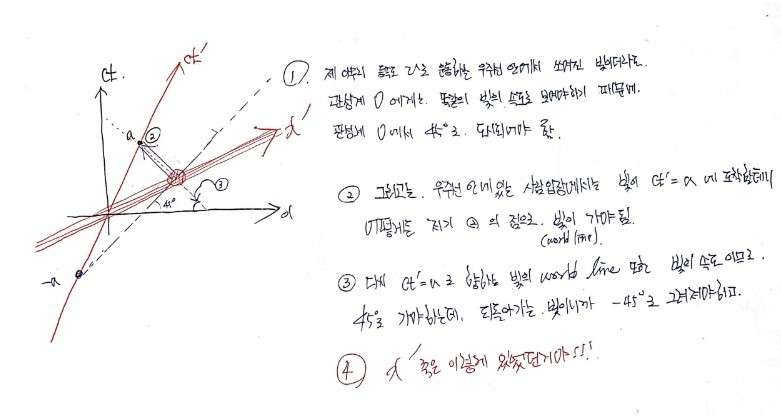 ct.
ct'
x'
x
a
②
③
45°
-a
① 제 아무리 속도 v로 운동하는 우주선 안에서 쏘여진 빛이더라도.
관성계 O 에게는 똑같이 빛의 속도로 보여야하기 때문에.
관성계 O에서 45°로 도시되어야 함.
② 그리고는 우주선 안에 있는 사람 입장에서는 빛이 ct'=a 에 도착할테니
어떻게든 저기 ②의 점으로 빛이 가야 됨.
(world line).
③ 다시 ct'=a로 향하는 빛의 world line 또한 빛의 속도이므로.
45°로 가야하는데, 되돌아가는 빛이니까 -45°로 그려져야하고.
④ x' 축은 이렇게 있었던거야!!!